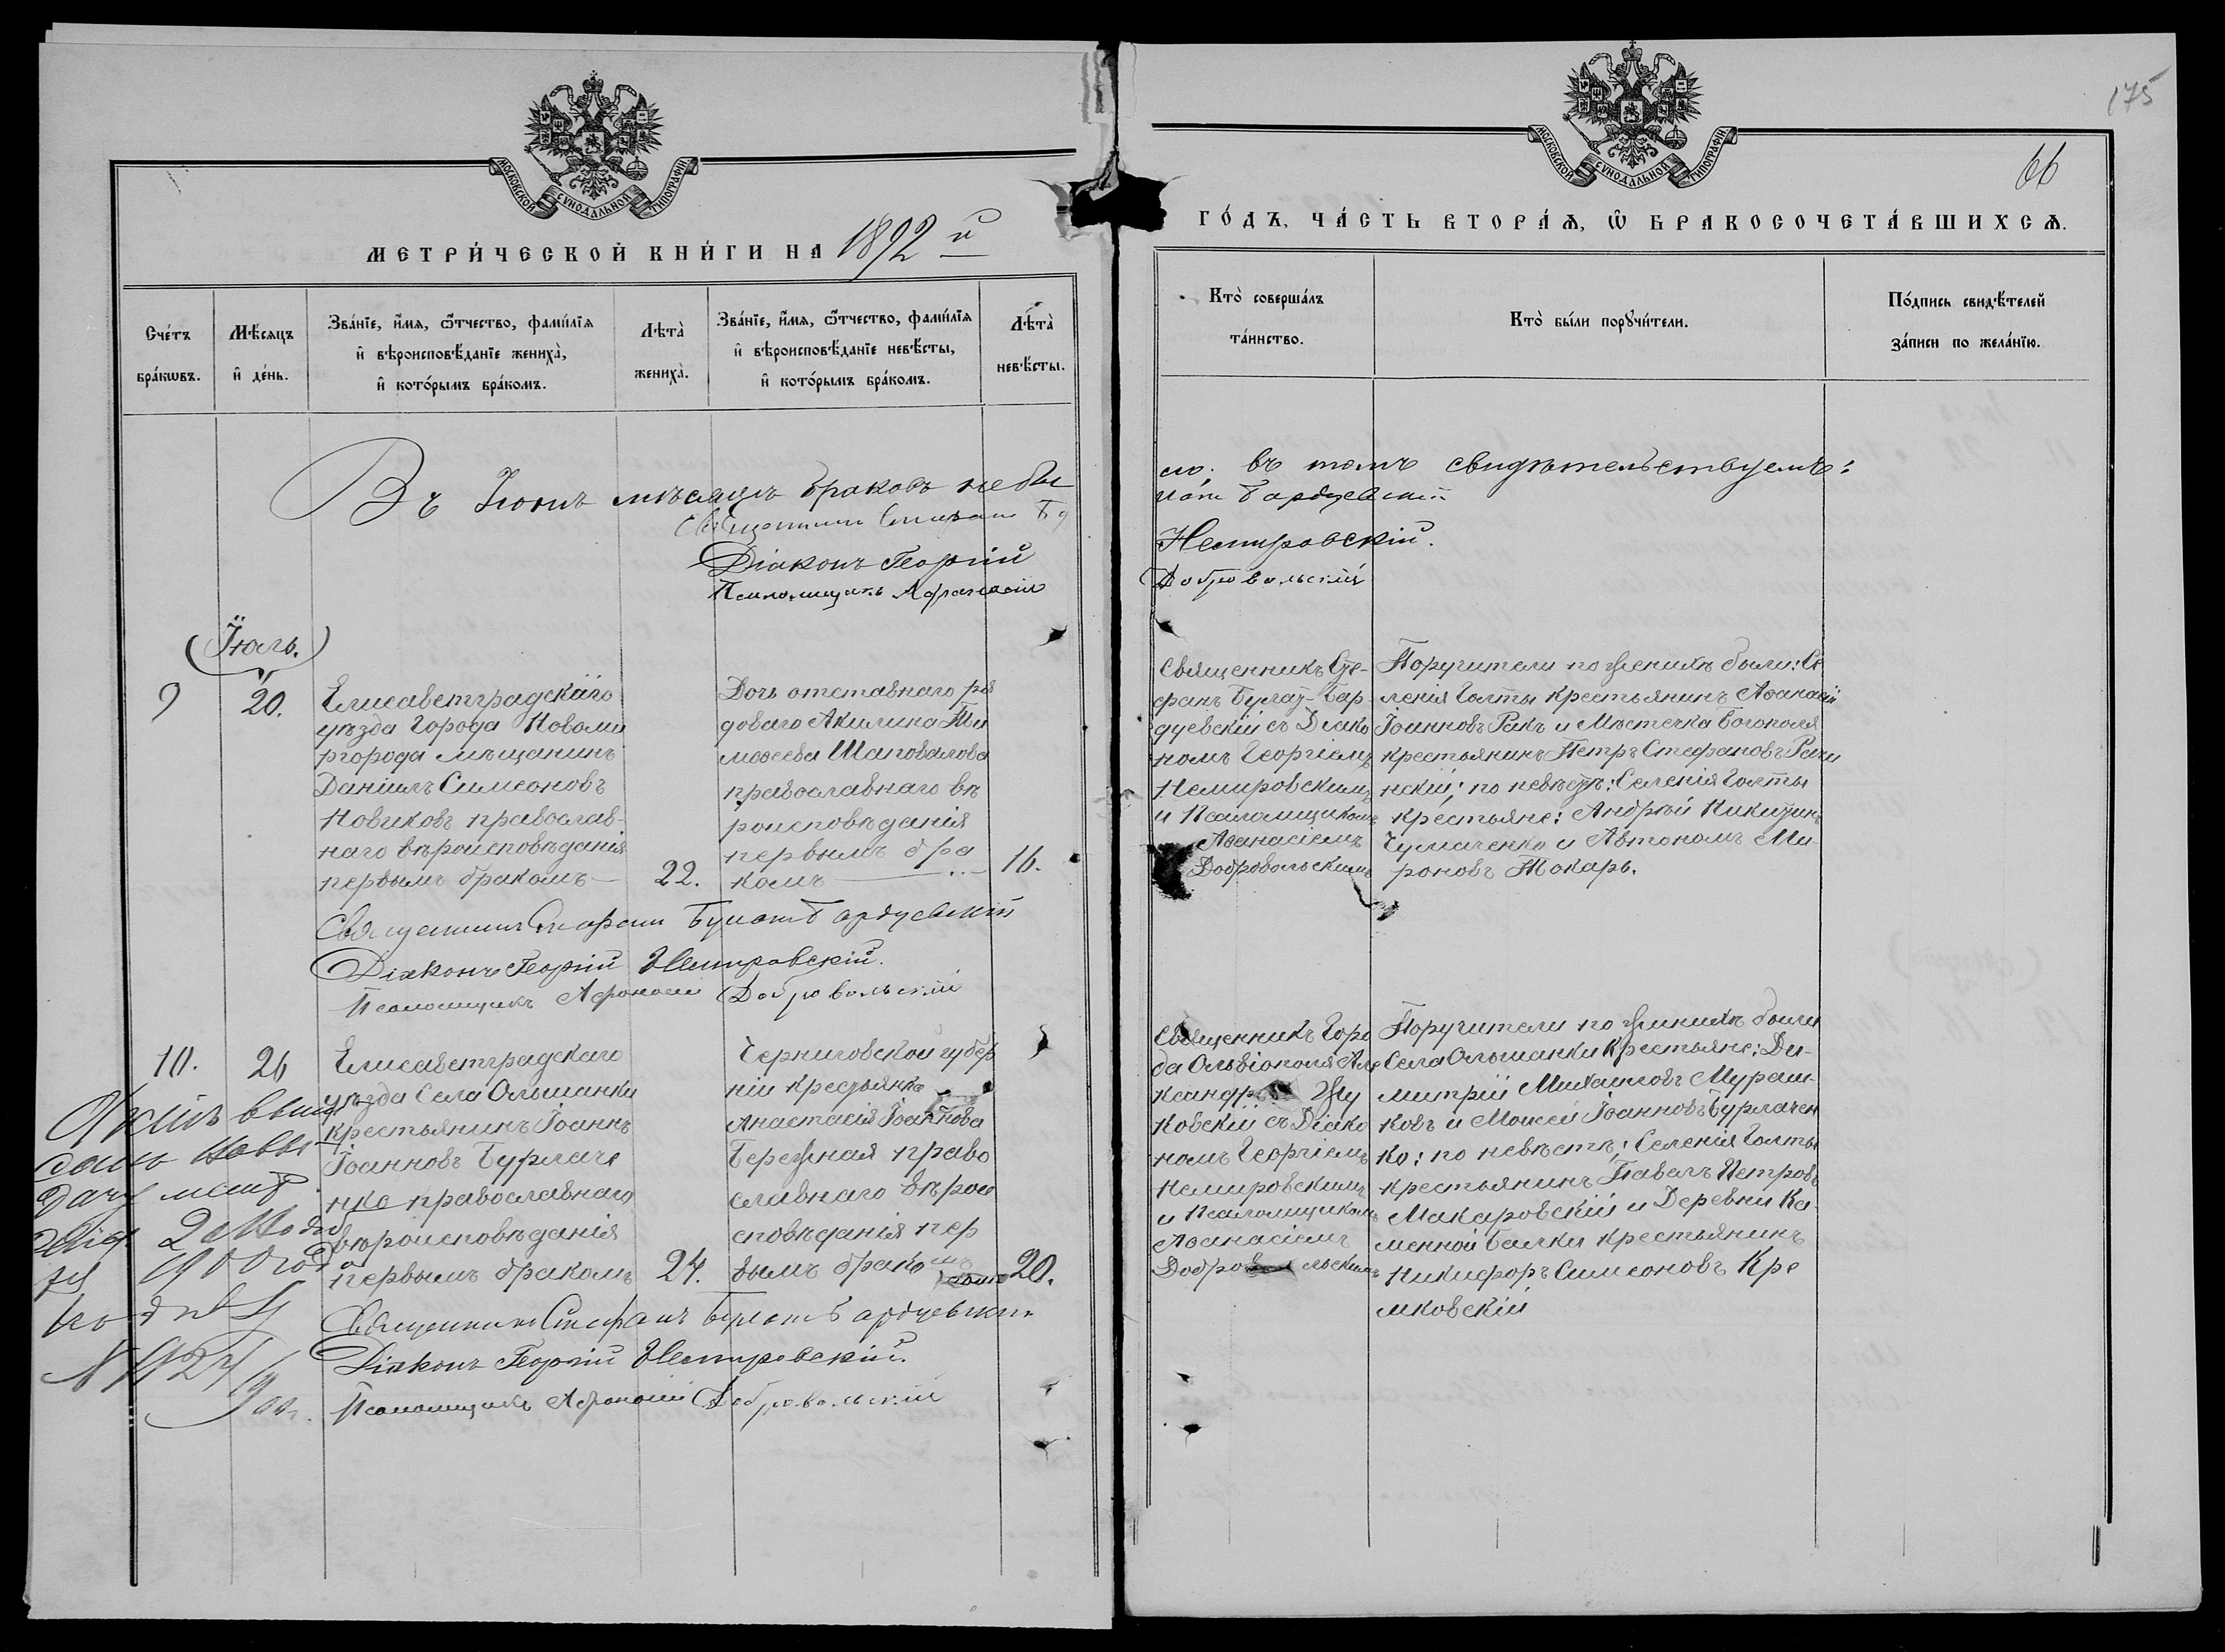 МОСКОВСКОЙ СУНОДАЛЬНОЙ ТИПОГРАФІИ
МЕТРИ́ЧЕСКОЙ КНИ́ГИ НА 1892 й
Сче́тъ бра́кѡвъ.
Мѣ́сяцъ и҆ де́нь.
Зва́нїе, и҆́мѧ, ѻ҆́тчество, фами́лїѧ и҆ вѣроисповѣ́данїе жениха̀, и҆ кото́рымъ бра́комъ.
Лѣта̀ жениха̀.
Зва́нїе, и҆́мѧ, ѻ҆́тчество, фами́лїѧ и҆ вѣроисповѣ́данїе невѣ́сты, и҆ кото́рымъ бра́комъ.
Лѣта̀ невѣ́сты.
Въ Іюнѣ мѣсяцѣ браковъ не бы
Священникъ Стефанъ
Діаконъ Георгій
Псаломщикъ Афанасій
(Іюль.)
9
20.
Елисаветградскаго
уѣзда Города Новоми
ргорода мѣщанинъ
Даніилъ Симеоновъ
Новиковъ православ-
наго вѣроисповѣданія
первымъ бракомъ
22.
Дочь отставнаго ря
доваго Акилина Ти
моѳеева Шаповалова
православнаго вѣ
роисповѣданія
первымъ бра
комъ
16.
Священникъ Стефанъ Булатъ Бардуевскій
Діаконъ Георгій Немировскій.
Псаломщикъ Афанасій Добровольскій
10.
26
Елисаветградскаго
уѣзда Села Ольшанки
крестьянинъ Іоаннъ
Іоанновъ Бурлаче
нко православнаго
вѣроисповѣданія
первымъ бракомъ
24.
Черниговской губер
ніи крестьянка
Анастасія Іоаннова
Бережная право
славнаго вѣрои
сповѣданія пер
вымъ брако
мъ
20.
Священникъ Стефанъ Булатъ Бардуевскій
Діаконъ Георгій Немировскій.
Псаломщикъ Афанасій Добровольскій
1900 года
175
66
МОСКОВСКОЙ СУНОДАЛЬНОЙ ТИПОГРАФІИ
ГО́ДЪ, ЧА́СТЬ ВТОРА́Ѧ, Ѡ҆ БРАКОСОЧЕТА́ВШИХСѦ.
Кто̀ соверша́лъ та́инство.
Кто̀ бы́ли порꙋчи́тели.
По́дпись свидѣ́телей за́писи по жела́нїю.
ло; въ томъ свидѣтельствуемъ:
Бардуевскій
Немировскій.
Добровольскій
Священникъ Сте-
фанъ Булат-Бар-
дуевскій съ Діако
номъ Георгіемъ
Немировскимъ
и Псаломщикомъ
Аѳанасіемъ
Добровольскимъ
Поручители по женихѣ были: Се
ленія Голты крестьянинъ Аѳанасій
Іоанновъ Ракъ и Мѣстечка Богополя
крестьянинъ Петръ Стефановъ Рачи
нскій; по невѣстѣ: Селенія Голты
крестьяне: Андрей Никитинъ
Чумаченко и Автономъ Ми-
роновъ Токарь.
Священникъ Горо
да Ольвіополя Але
ксандръ Жу
ковскій съ Діако
номъ Георгіемъ
Немировскимъ
и Псаломщикомъ
Аѳанасіемъ
Добровольскимъ
Поручители по женихѣ были
Села Ольшанки Крестьяне: Ди-
митрій Михаиловъ Мураш-
ковъ и Моисей Іоанновъ Бурлачен
ко: по невѣстѣ: Селенія Голты
крестьянинъ Павелъ Петровъ
Макаровскій и Деревни Ка
менной Балки крестьянинъ
Никифоръ Симеоновъ Кре
мковскій